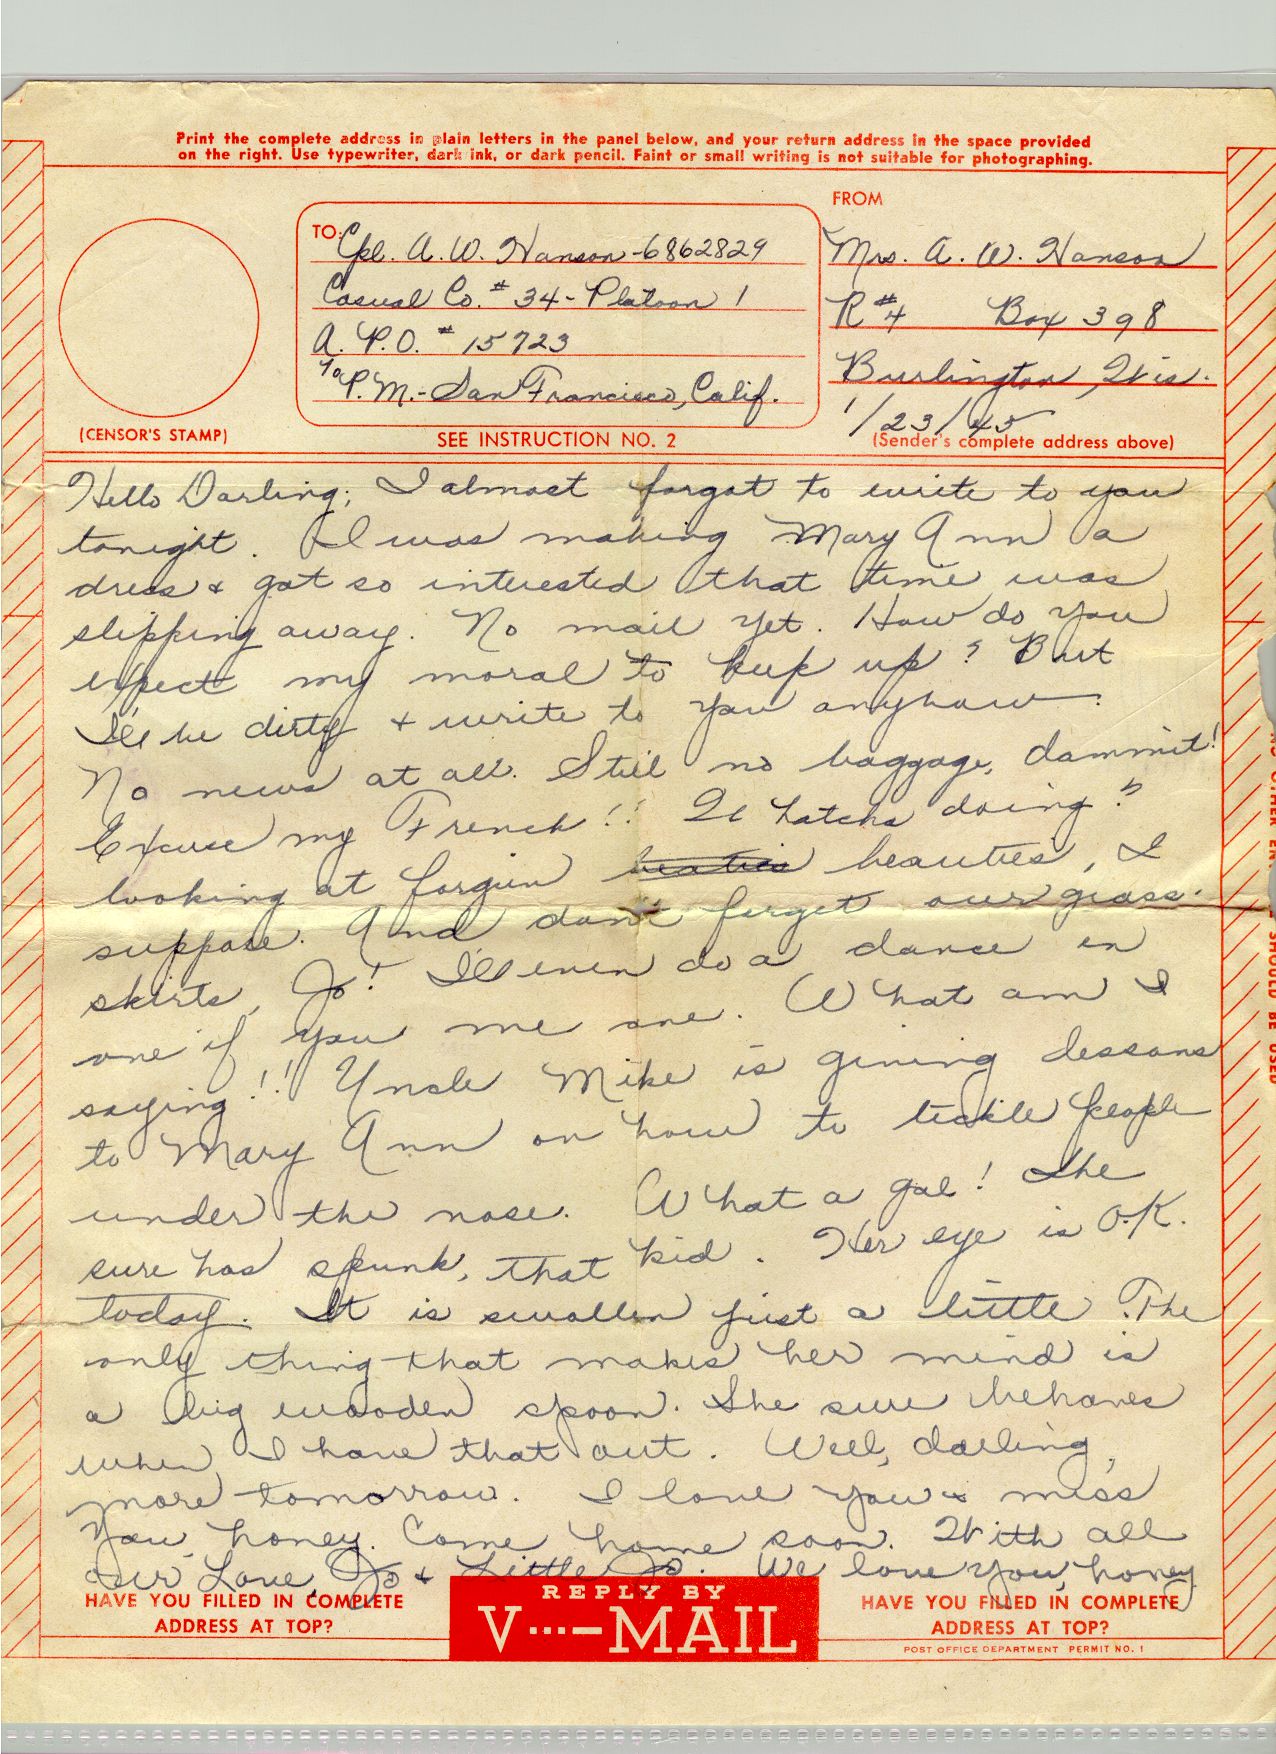 Print the complete address in plain letters in the panel below, and your return address in the space provided
on the right. Use typewriter, dark ink, or dark pencil. Faint or small writing is not suitable for photographing.
FROM
TO:
Cpl. A. W. Hanson - 6862829
Casual Co. # 34 - Platoon 1
A. P. O. # 15723
℅ P. M. - San Francisco, Calif.
Mrs. A. W. Hanson
R #4 Box 398
Burlington, Wis.
1/23/45
(CENSOR'S STAMP)
SEE INSTRUCTION NO. 2
(Sender's complete address above)
Hello Darling; I almost forgot to write to you
tonight. I was making Mary Ann a
dress & got so interested that time was
slipping away. No mail yet. How do you
expect my moral to keep up? But
I'll be dirty & write to you anyhow.
No news at all. Still no baggage, dammit!
Excuse my French!! Whatcha doing?
looking at forgiun beauties, I
suppose. And don't forget our grass-
skirts, Jo! I'll even do a dance in
one if you me one. What am I
saying!! Uncle Mike is giving lessons
to Mary Ann on how to tickle people
under the nose. What a gal! She
sure has spunk, that kid. Her eye is O.K.
today. It is swollen just a little. The
only thing that makes her mind is
a big wooden spoon. She sure behaves
when I have that out. Well, darling,
more tomorrow. I love you & miss
you, honey. Come home soon. With all
our Love, Jo & Little Jo. We love you, honey.
HAVE YOU FILLED IN COMPLETE
ADDRESS AT TOP?
REPLY BY
V···—MAIL
HAVE YOU FILLED IN COMPLETE
ADDRESS AT TOP?
POST OFFICE DEPARTMENT PERMIT NO. 1
SHOULD BE USED